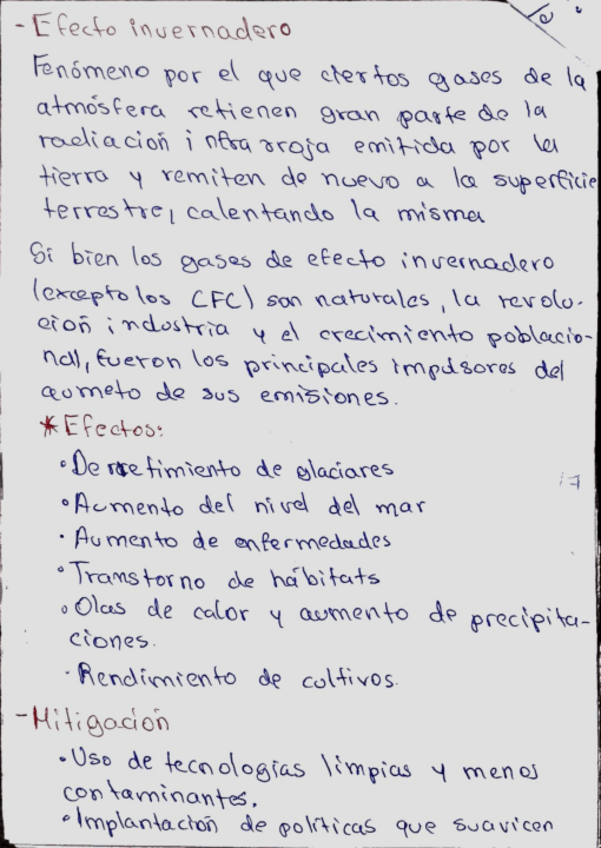 - Efecto invernadero
Fenómeno por el que ciertos gases de la
atmósfera retienen gran parte de la
radiación infrarroja emitida por la
tierra y remiten de nuevo a la superficie
terrestre, calentando la misma
Si bien los gases de efecto invernadero
(excepto los CFC) son naturales, la revolu-
ción industria y el crecimiento poblacio-
nal, fueron los principales impulsores del
aumeto de sus emisiones.
* Efectos:
• Derretimiento de glaciares
• Aumento del nivel del mar
• Aumento de enfermedades
• Transtorno de hábitats
• Olas de calor y aumento de precipita-
ciones.
• Rendimiento de cultivos.
- Mitigación
• Uso de tecnologías limpias y menos
contaminantes.
• Implantación de políticas que suavicen